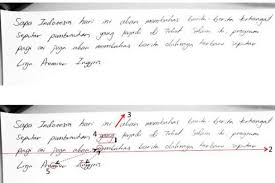 Sapa Indonesia hari ini akan membahas berita-berita ketangat
Seputar pembunuhan yang terjadi di Tebet Selain itu program
pagi ini juga akan membahas berita olahraga terbaru seputar
Liga Premier Inggris
3
Sapa Indonesia hari ini akan membahas berita-berita ketangat
4
Seputar pembunuhan yang terjadi di Tebet Selain itu program
1
pagi ini juga akan membahas berita olahraga terbaru seputar
2
Liga Premier Inggris
5